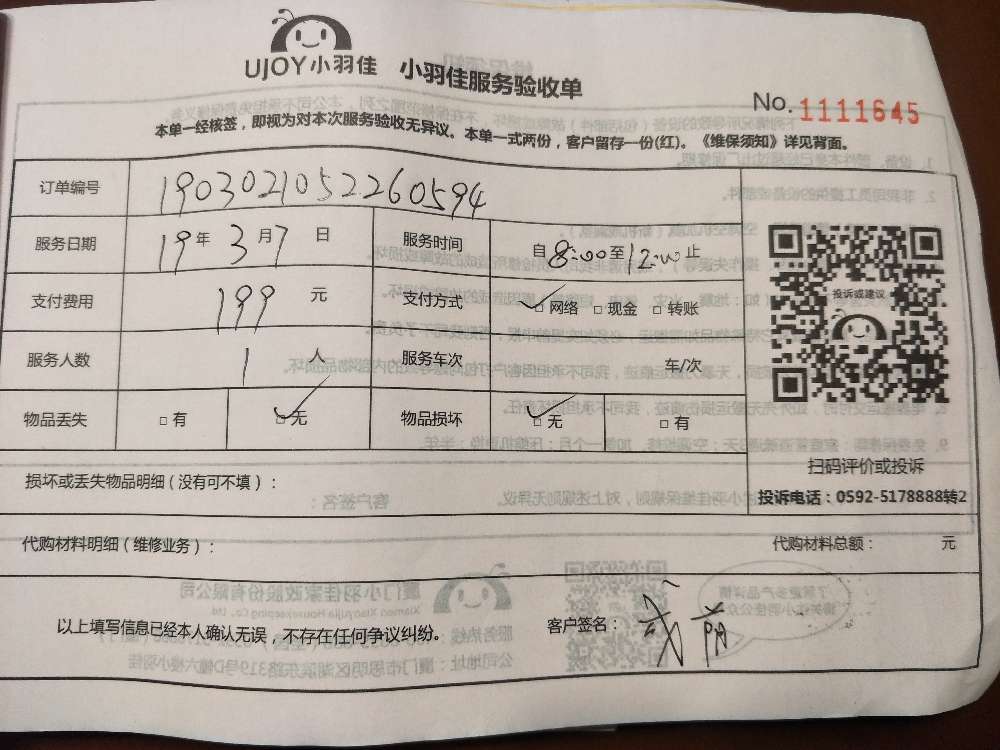 UJOY小羽佳 小羽佳服务验收单
No. 1111645
本单一经核签，即视为对本次服务验收无异议。本单一式两份，客户留存一份(红)。《维保须知》详见背面。
订单编号 1903021052260594
服务日期 19年3月7日 服务时间 自8:00至12:00止
支付费用 199元 支付方式 □网络 □现金 □转账
投诉或建议
服务人数 1人 服务车次 车/次
物品丢失 □有 □无 物品损坏 □无 □有
扫码评价或投诉
损坏或丢失物品明细（没有可不填）：
投诉电话：0592-5178888转2
代购材料明细（维修业务）： 代购材料总额： 元
以上填写信息已经本人确认无误，不存在任何争议纠纷。 客户签名：